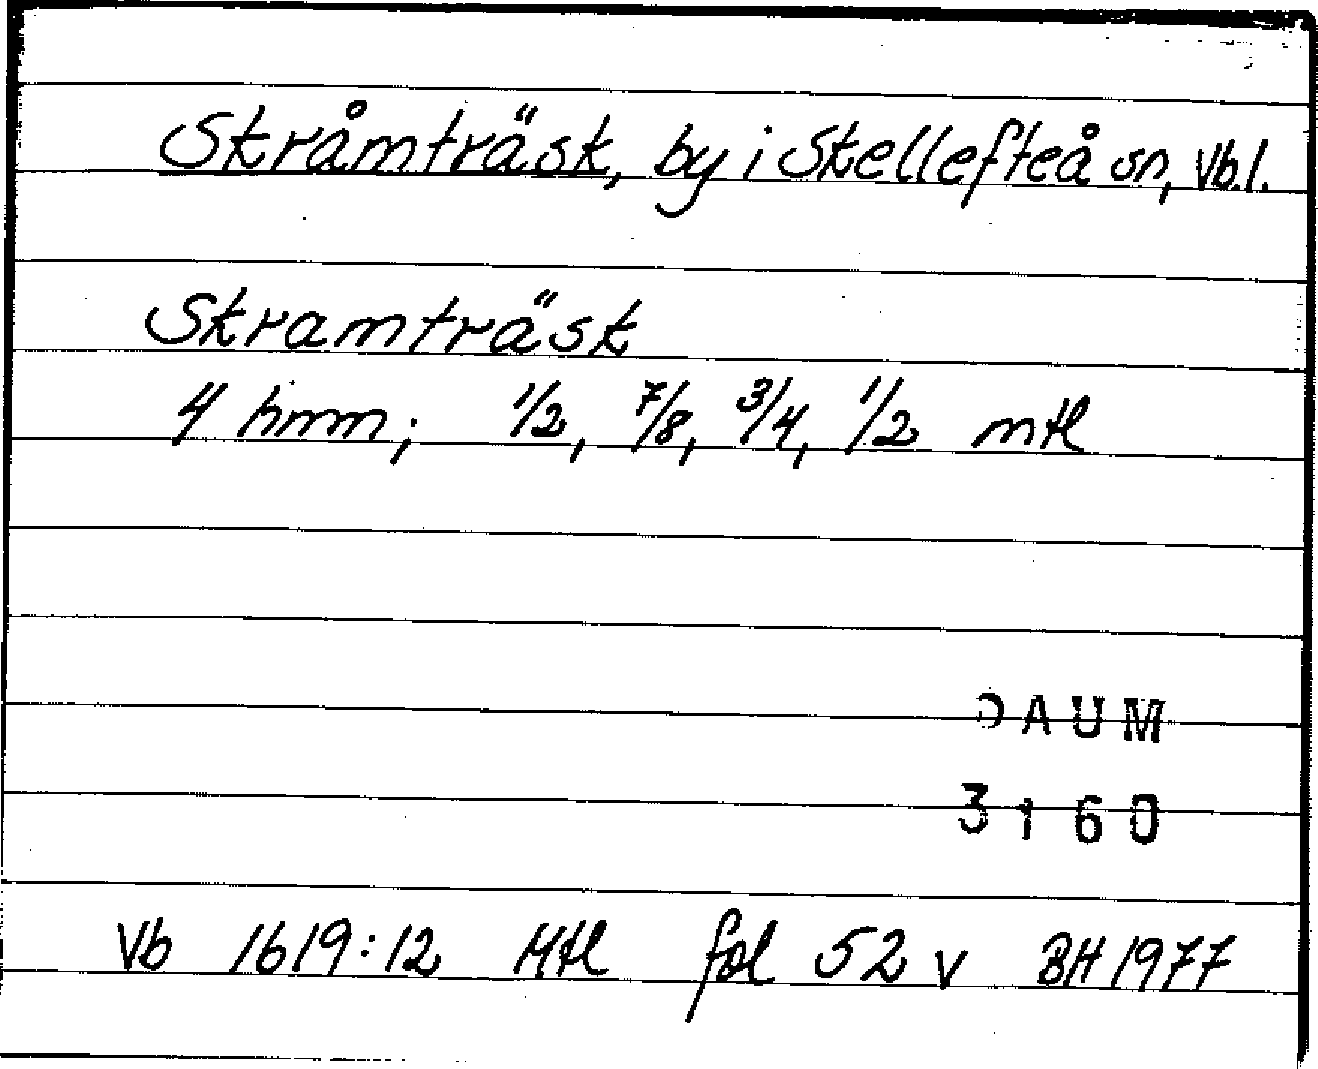 Skråmträsk, by i Skellefteå sn, Vb.l.
Skramträsk
4 hmm; 1/2, 7/8, 3/4, 1/2 mtl
DAUM
3160
Vb 1619:12 Mtl fol 52 v BH 1977